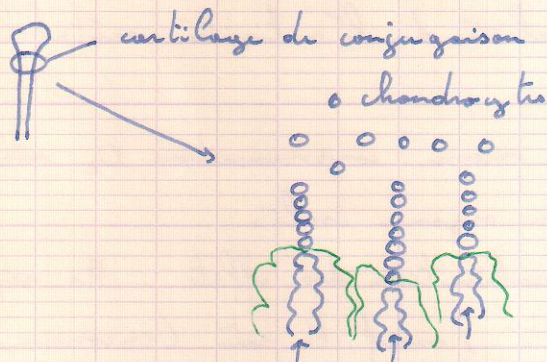 cartilage de conjugaison
chondrocytes